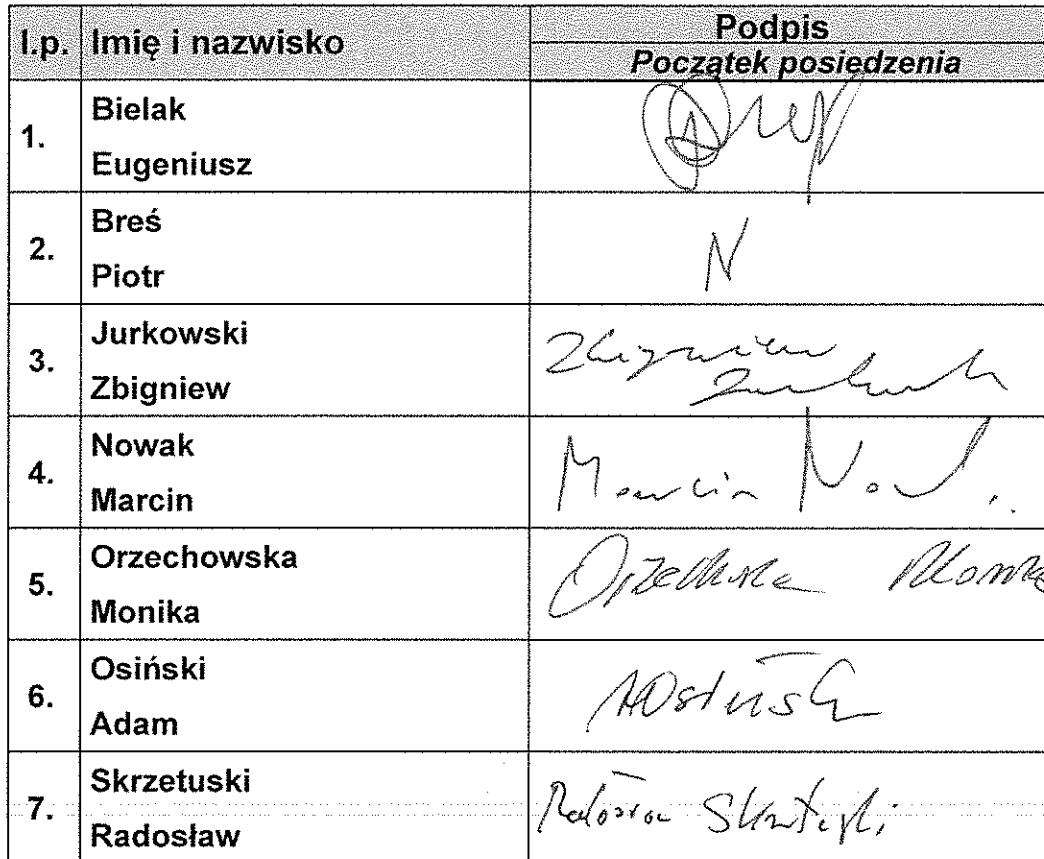 l.p. Imię i nazwisko Podpis
Początek posiedzenia
1. Bielak
Eugeniusz
2. Breś
Piotr
N
3. Jurkowski
Zbigniew
Zbigniew
4. Nowak
Marcin
Marcin Nowak
5. Orzechowska
Monika
Orzechowska Monika
6. Osiński
Adam
AOsiński
7. Skrzetuski
Radosław
Radosław Skrzetuski